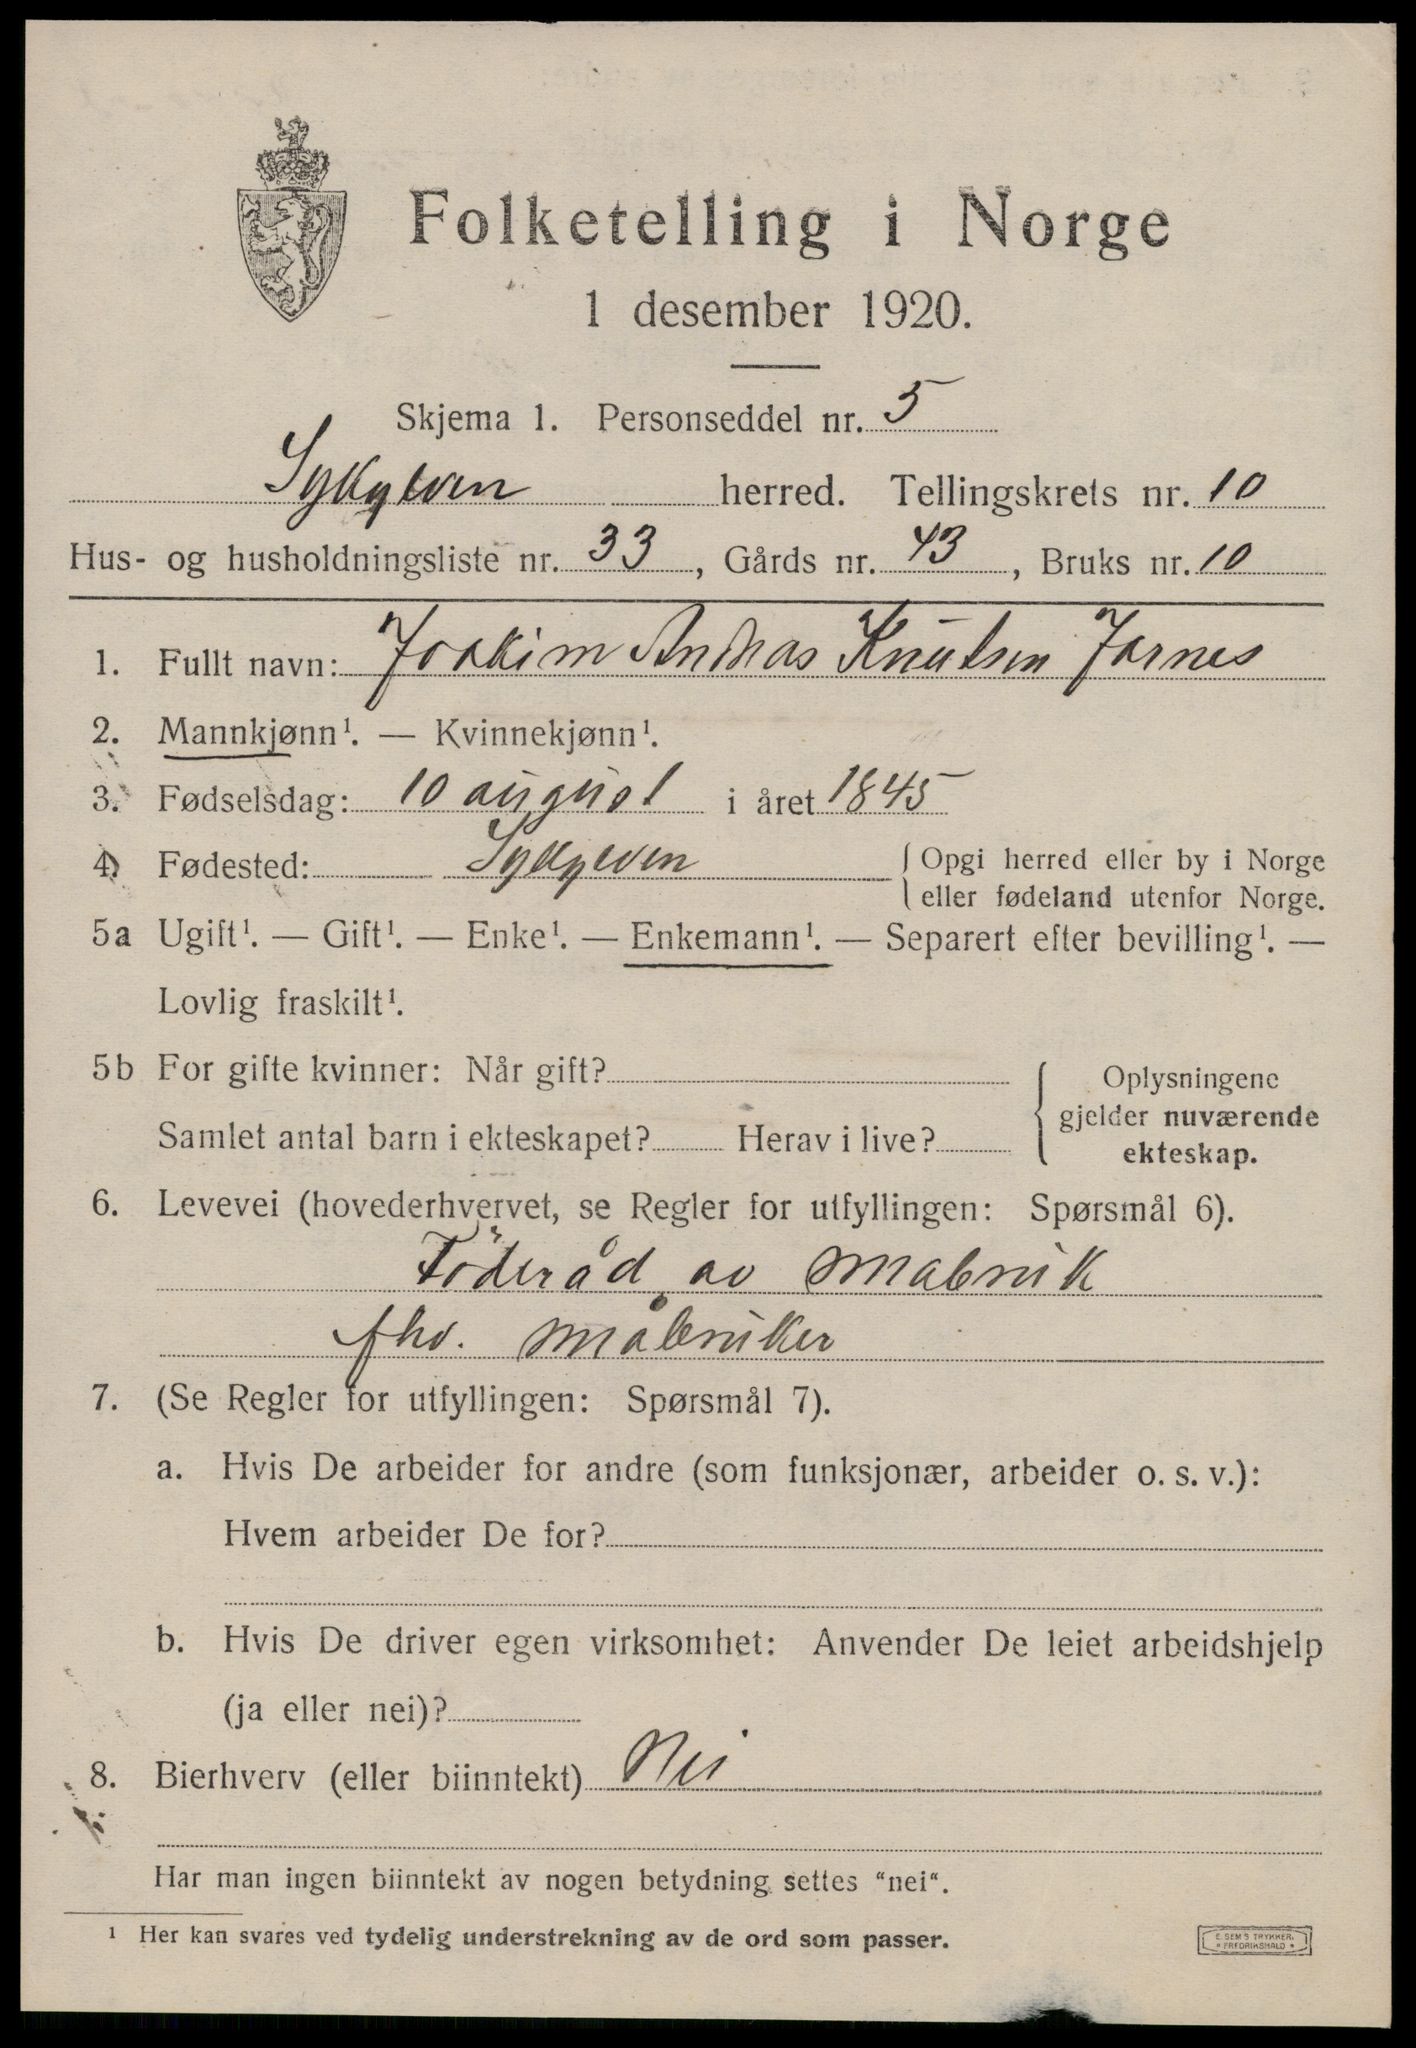 Folketelling i Norge
1 desember 1920.
Skjema 1. Personseddel nr. 5
Sykylven herred. Tellingskrets nr. 10
Hus- og husholdningsliste nr. 33, Gårds nr. 43, Bruks nr. 10
1. Fullt navn: Joakim Andreas Knutsen Jarnes
2. Mannkjønn¹. — Kvinnekjønn¹.
3. Fødselsdag: 10 august i året 1845
4. Fødested: Sykylven { Opgi herred eller by i Norge
eller fødeland utenfor Norge.
5a Ugift¹. — Gift¹. — Enke¹. — Enkemann¹. — Separert efter bevilling¹. —
Lovlig fraskilt¹.
5b For gifte kvinner: Når gift?
Samlet antal barn i ekteskapet? Herav i live?
Oplysningene
gjelder nuværende
ekteskap.
6. Levevei (hovederhvervet, se Regler for utfyllingen: Spørsmål 6).
Föderåd av småbruk
fhv. småbruker
7. (Se Regler for utfyllingen: Spørsmål 7).
a. Hvis De arbeider for andre (som funksjonær, arbeider o. s. v.):
Hvem arbeider De for?
b. Hvis De driver egen virksomhet: Anvender De leiet arbeidshjelp
(ja eller nei)?
8. Bierhverv (eller biinntekt) Nei
Har man ingen biinntekt av nogen betydning settes "nei".
¹ Her kan svares ved tydelig understrekning av de ord som passer.
E. SEM'S TRYKKERI
FREDRIKSHALD